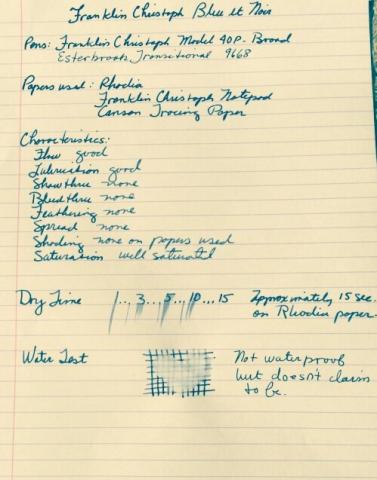 Franklin Christoph Bleu et Noir
Pens: Franklin Christoph Model 40P - Broad
Esterbrook Transitional 9668
Papers used: Rhodia
Franklin Christoph Notepad
Canson Tracing Paper
Characteristics:
Flow good
Lubrication good
Show thru none
Bleed thru none
Feathering none
Spread none
Shading none on papers used
Saturation well saturated
Dry Time 1... 3... 5... 10... 15 Approximately 15 sec.
on Rhodia paper.
Water Test Not waterproof
but doesn't claim
to be.